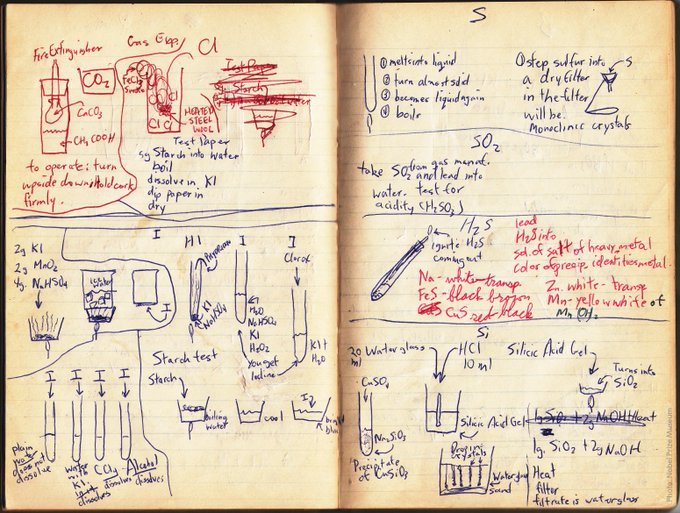 Fire Extinguisher
CO2
CaCO3
CH3COOH
to operate: turn
upside down + hold cork
firmly.
Gas Exp./
Cl
FeCl3
smoke
Cl
Cl Cl
HEATED
STEEL
WOOL
Test Paper
5g Starch
Test Paper
5g Starch into water
boil
dissolve in KI
dip paper in
dry
2g KI
2g MnO2
4g. NaHSO4
I
I
HI
KI
NaHSO4
I
H2O
NaHSO4
KI
H2O2
You get
Iodine
I
Clorox
KI +
H2O
Starch test
Starch
boiling
water
cool
I2
bright
blue
I I I I
plain
does not
dissolve
water
with
KI
dissolves
CCl4
dissolves
Alcohol
dissolves
S
① melts into liquid
② turn almost solid
③ becomes liquid again
④ boils
① step sulfur into
a dry filter
in the filter
will be
Monoclinic crystals
S
SO2
take SO2 from gas manat.
and lead into
water. test for
acidity (H2SO3)
H2S
ignite H2S
coming out
lead
H2S into
sol. of salt of heavy metal
color of precip. identifies metal.
Na - white - transp
FeS - black brown
CuS red black
Zn. white - transp
Mn - yellow white of
Mn OH2
Si
20
ml
Waterglass
CaSO4
Na2SiO3
Precipitate
of CaSiO3
HCl
10 ml
Silicic Acid Gel
Dropping
crystals
Waterglass
sand
Silicic Acid Gel
Turns into
SiO2
1g SiO2 + 2g NaOH Heat
1g. SiO2 + 2g NaOH
Heat
filter
filtrate is waterglass
Photo: Nobel Prize Museum